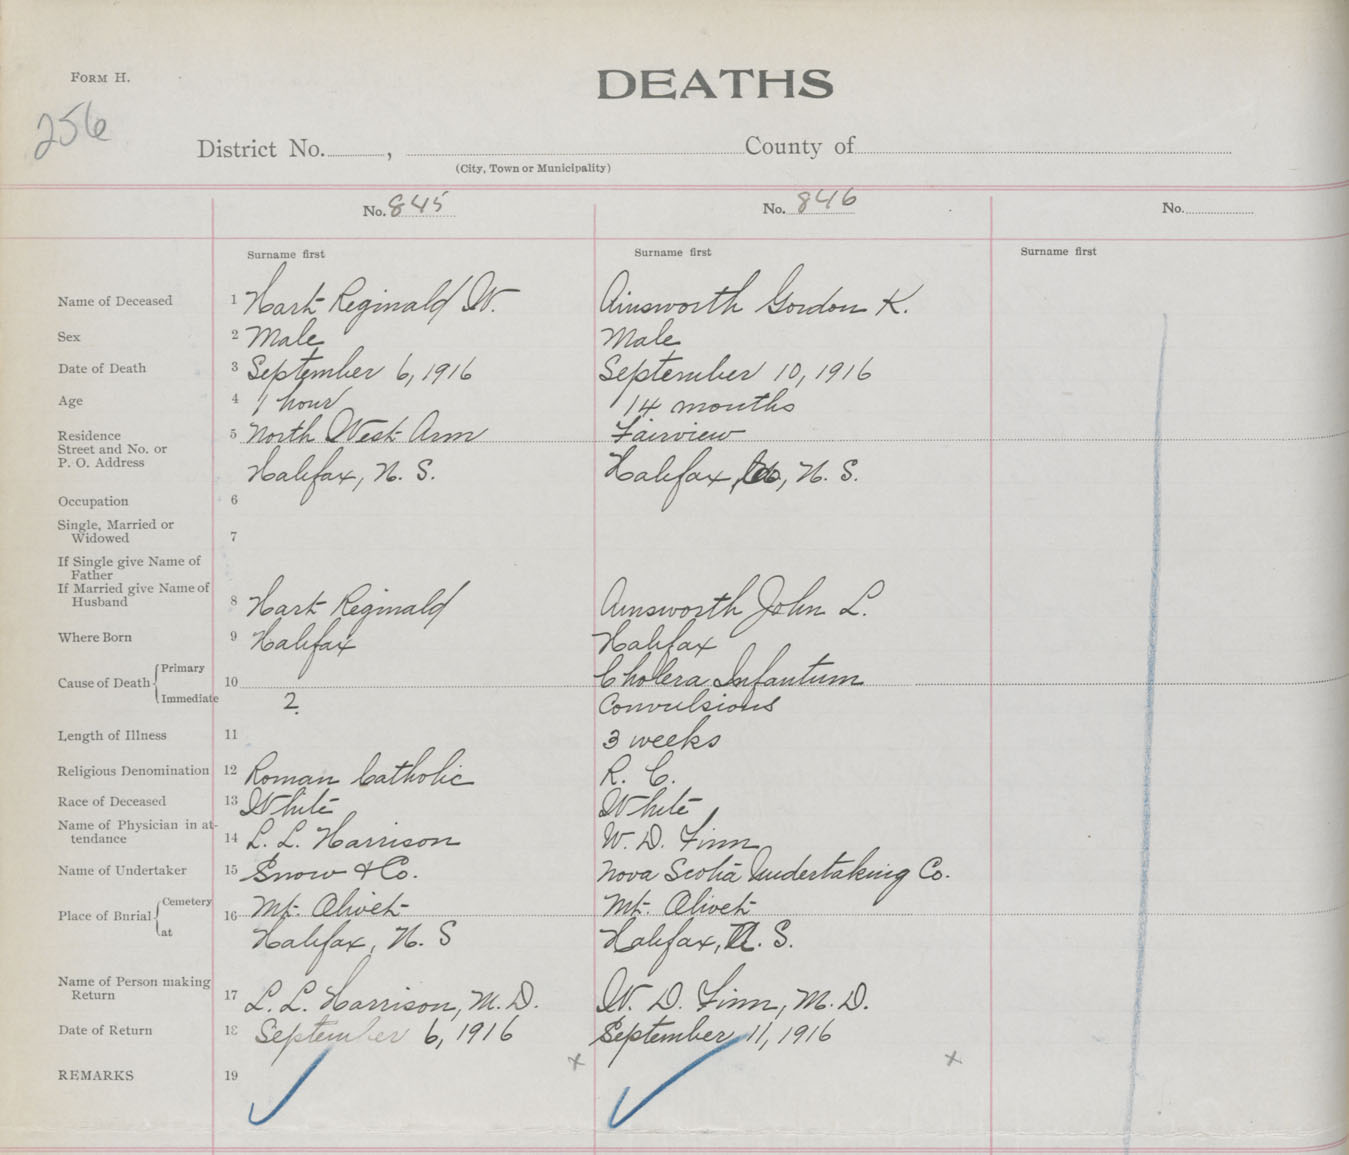 FORM H.
DEATHS
256
District No. , County of
(City, Town or Municipality)
No. 845 No. 846 No.
Surname first Surname first Surname first
Name of Deceased 1 Hart Reginald W. Ainsworth Gordon K.
Sex 2 Male Male
Date of Death 3 September 6, 1916 September 10, 1916
Age 4 1 hour 14 months
Residence 5 North West Arm Fairview
Street and No. or
P. O. Address Halifax, N. S. Halifax, Co, N. S.
Occupation 6
Single, Married or
Widowed 7
If Single give Name of
Father
If Married give Name of
Husband 8 Hart Reginald Ainsworth John L.
Where Born 9 Halifax Halifax
Cause of Death { Primary 10 Cholera Infantum
Immediate 2. Convulsions
Length of Illness 11 3 weeks
Religious Denomination 12 Roman Catholic R. C.
Race of Deceased 13 White White
Name of Physician in at-
tendance 14 L. L. Harrison W. D. Finn
Name of Undertaker 15 Snow & Co. Nova Scotia Undertaking Co.
Place of Burial { Cemetery 16 Mt. Olivet Mt. Olivet
at Halifax, N. S Halifax, N. S.
Name of Person making
Return 17 L. L. Harrison, M. D. W. D. Finn, M. D.
Date of Return 18 September 6, 1916 September 11, 1916
x x
REMARKS 19